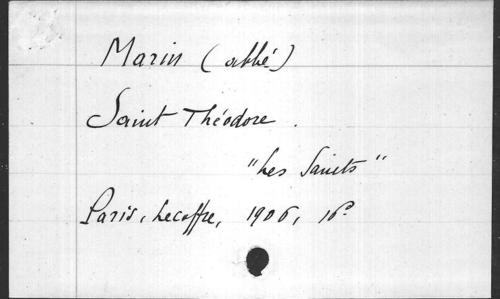 Marin (abbé)
Saint Théodore.
"Les Saints"
Paris, Lecoffre, 1906, 16°